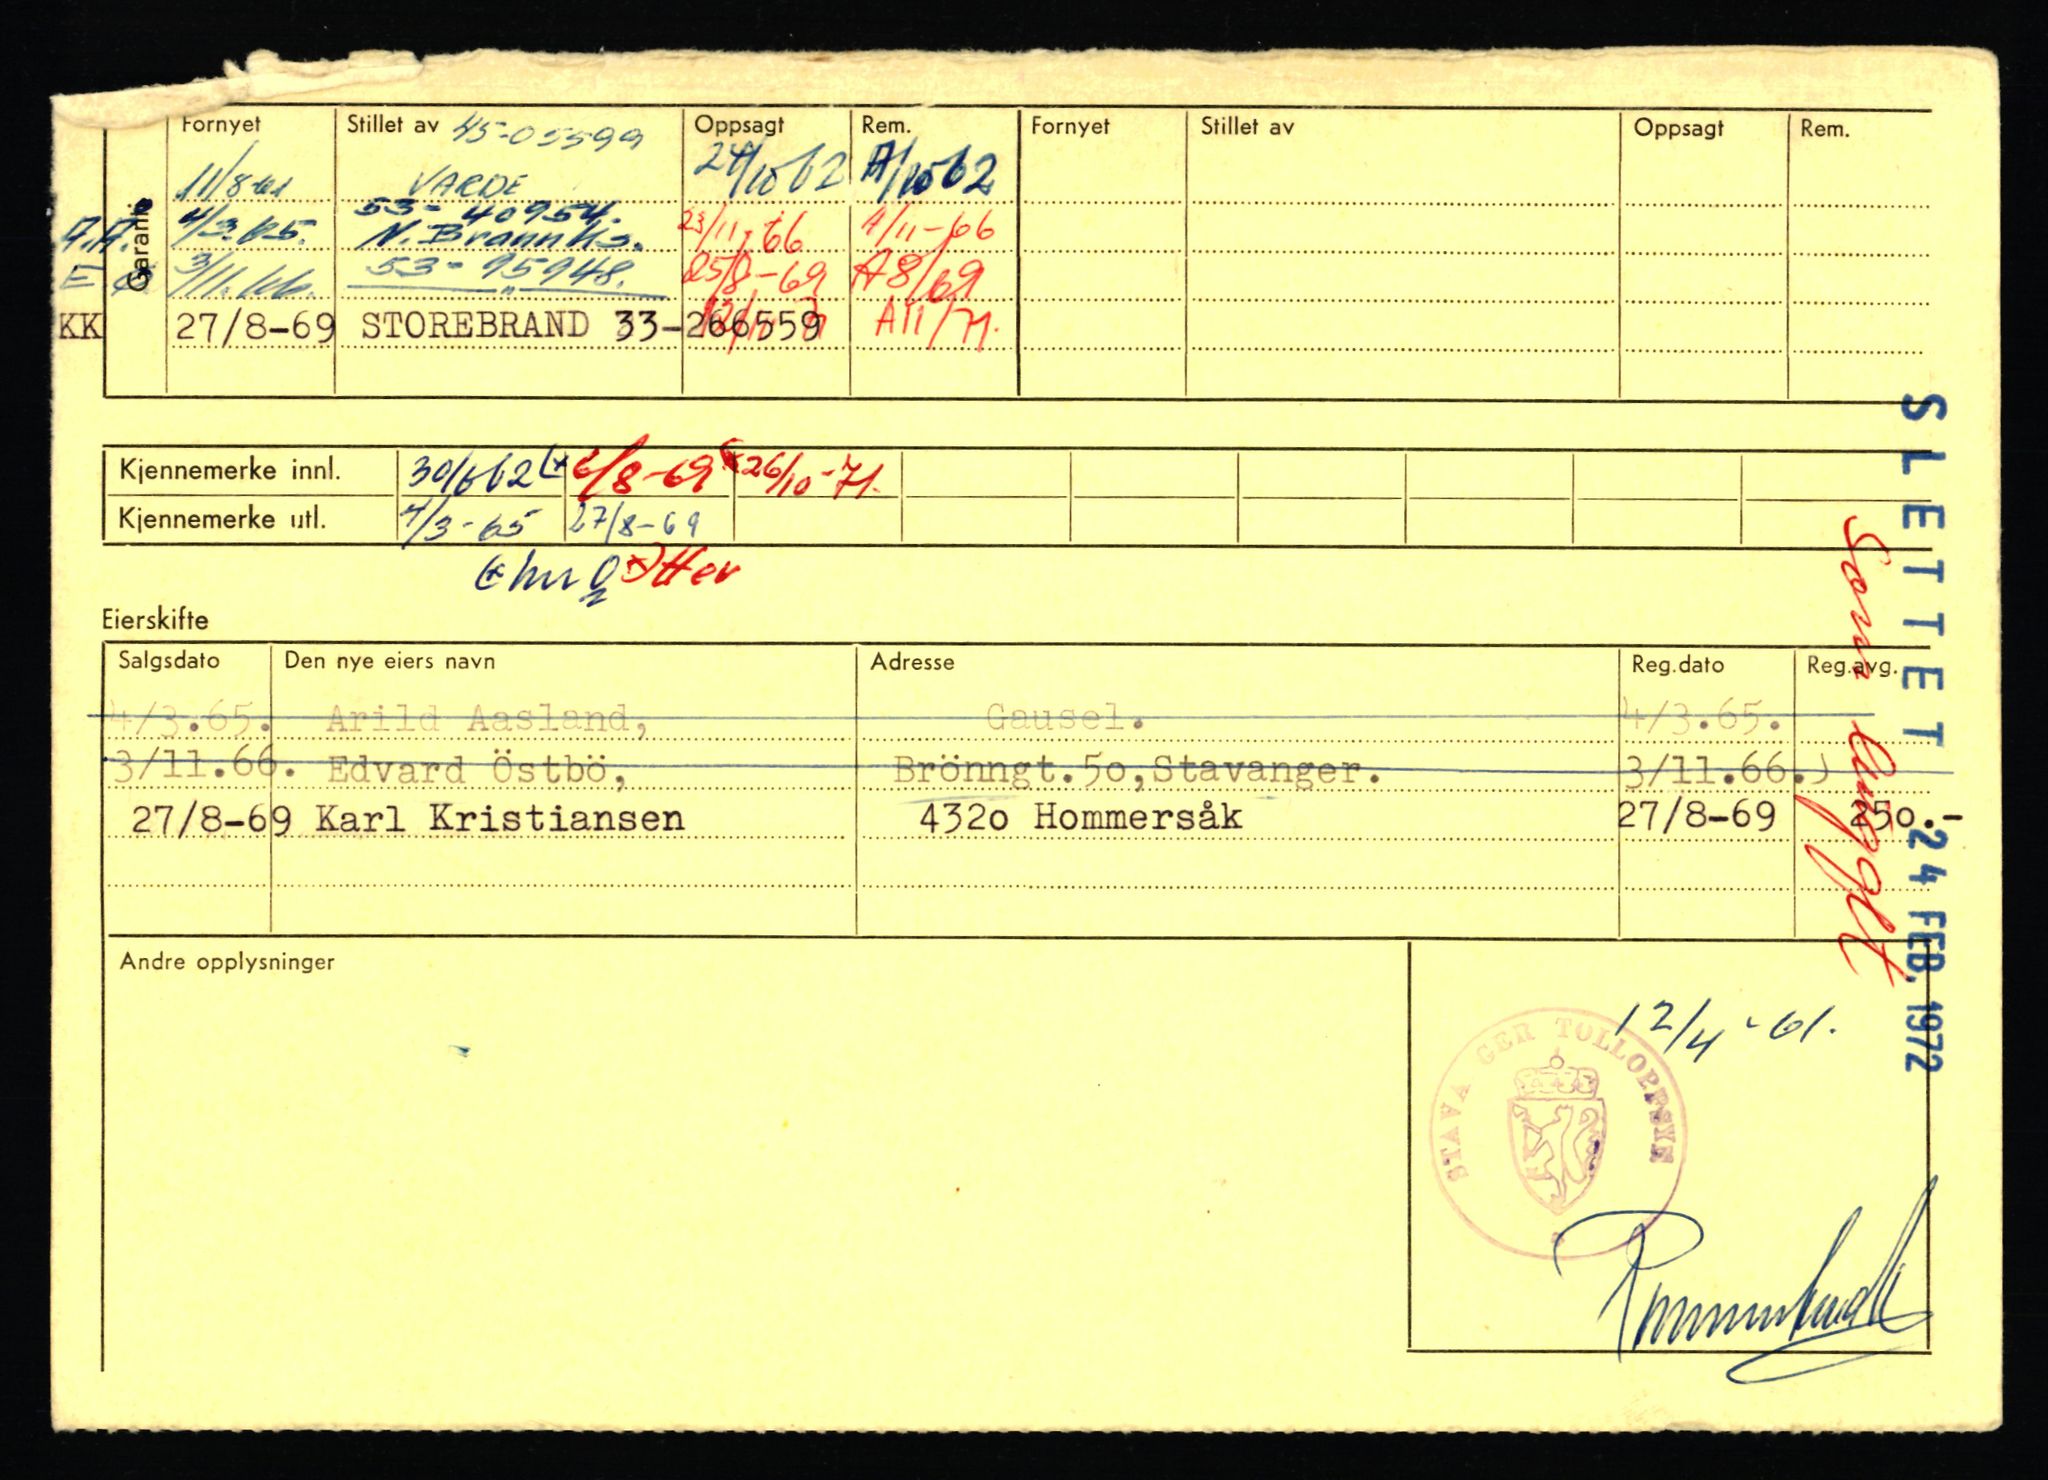 Fornyet Stillet av 45-05599 Oppsagt Rem. Fornyet Stillet av Oppsagt Rem.
Garanti
11/8-61 VARDE 24/10 62 A/10 62
A.A. 4/3.65. 53-40954. N. Brann Ks. 23/11-66 A/11-66
E 3/11.66. 53-"95948. 25/8-69 A8/69
KK 27/8-69 STOREBRAND 33-266559 A11/71.
Kjennemerke innl. 30/6 62 6/8-69 26/10-71.
Kjennemerke utl. 4/3-65 27/8-69
Eierskifte
Salgsdato Den nye eiers navn Adresse Reg.dato Reg.avg.
4/3.65. Arild Aasland, Gausel. 4/3.65.
3/11.66. Edvard Östbö, Brönngt.5o,Stavanger. 3/11.66.)
27/8-69 Karl Kristiansen 432o Hommersåk 27/8-69 25o.-
Andre opplysninger
12/4-61.
STAVA GER TOLLOPPSYN
SLETTET 24 FEB. 1972
Som bygget